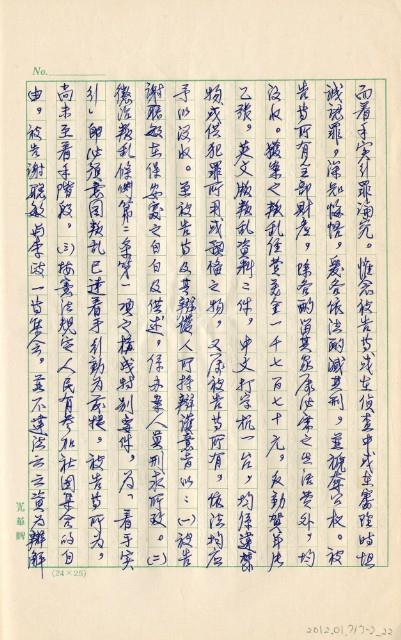 No.
而着手實行罪涌究。惟念被告等或在偵查中或在審理時坦
誠認罪,深知悔悟,爰各依法酌減其刑,並褫奪公權。被
告等所有全部財產,除各酌留其家屬必需之生活費外,均
沒收。獲案之叛亂經費美金一千七百七十元,反動
乙張,英文版叛亂資料二件,中文打字机一台,均係違禁
物或供犯罪所用或預備之物,又屬被告等所有,依法均應
予以沒收。至被告等及其辯護人所持辯護意旨以:(一)被告
謝聰敏在保安處之自白及供述,係辦案人員刑求所致。(二)
懲治叛亂條例第二條第一項之構成特別要件,為「着手實
行」,即必須意圖叛亂已達着手行動為前提。被告等所為,
尚未至着手階段。(三)按憲法規定人民有參加社團集會的自
由,被告謝聰敏與李政一等集會,並不違法云云資為辯解
光華牌
(24×25)
2012.01.717-2_22